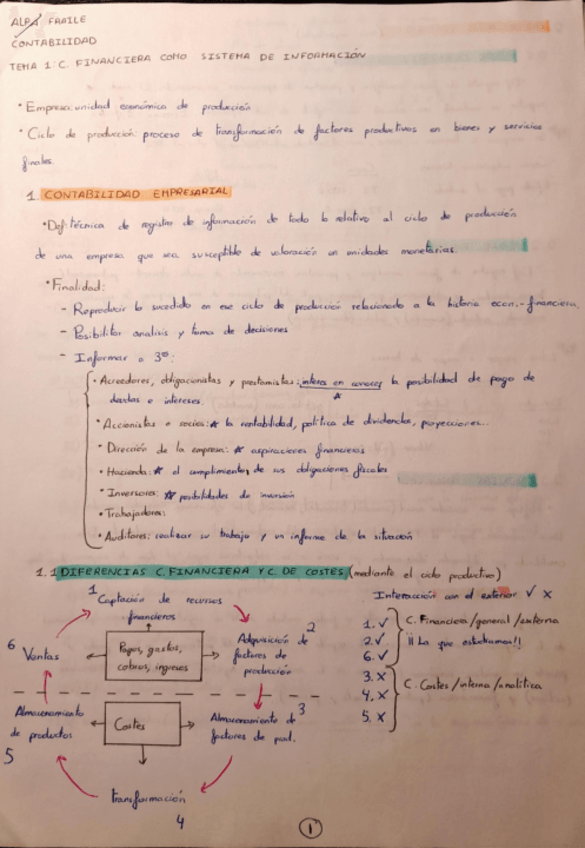 ALBA FRAILE
CONTABILIDAD
TEMA 1: C. FINANCIERA COMO SISTEMA DE INFORMACIÓN
· Empresa: unidad económica de producción
· Ciclo de producción: proceso de transformación de factores productivos en bienes y servicios
finales.
1. CONTABILIDAD EMPRESARIAL
· Def: técnica de registro de información de todo lo relativo al ciclo de producción
de una empresa que sea susceptible de valoración en unidades monetarias.
· Finalidad:
- Reproducir lo sucedido en ese ciclo de producción relacionado a la historia econ.-financiera
- Posibilitar analisis y toma de decisiones
- Informar a 3º:
· Acreedores, obligacionistas y prestamistas: interes en conocer la posibilidad de pago de
deudas e intereses.
· Accionistas o socios: * la rentabilidad, política de dividendos, proyecciones...
· Dirección de la empresa: * aspiraciones financieras
· Hacienda: * el cumplimiento de sus obligaciones fiscales
· Inversores: * posibilidades de inversión
· Trabajadores:
· Auditores: realizar su trabajo y un informe de la situación
1.1 DIFERENCIAS C. FINANCIERA Y C. DE COSTES (mediante el ciclo productivo)
1 Captación de recursos
financieros
2 Adquisición de
factores de
producción
3 Almacenamiento de
factores de prod.
4 Transformación
5 Almacenamiento
de productos
6 Ventas
Pagos, gastos,
cobros, ingresos
Costes
Interacción con el exterior ✓ X
1. ✓
2. ✓
6. ✓
C. Financiera/general/externa
¡¡Lo que estudiamos!!
3. X
4. X
5. X
C. Costes/interna/analítica
1